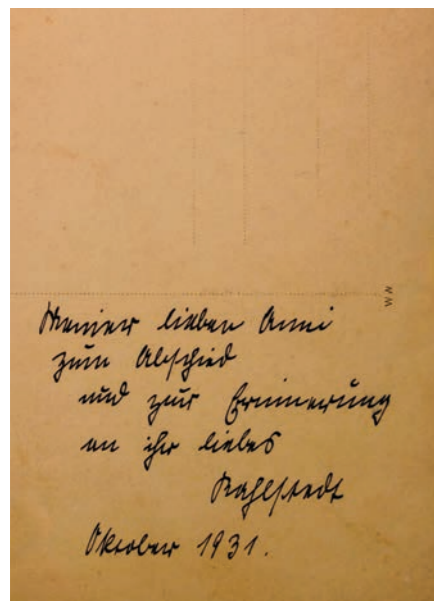 Meiner lieben Anni
zum Abschied
und zur Erinnerung
an ihr liebes
Rahlstedt
Oktober 1931.